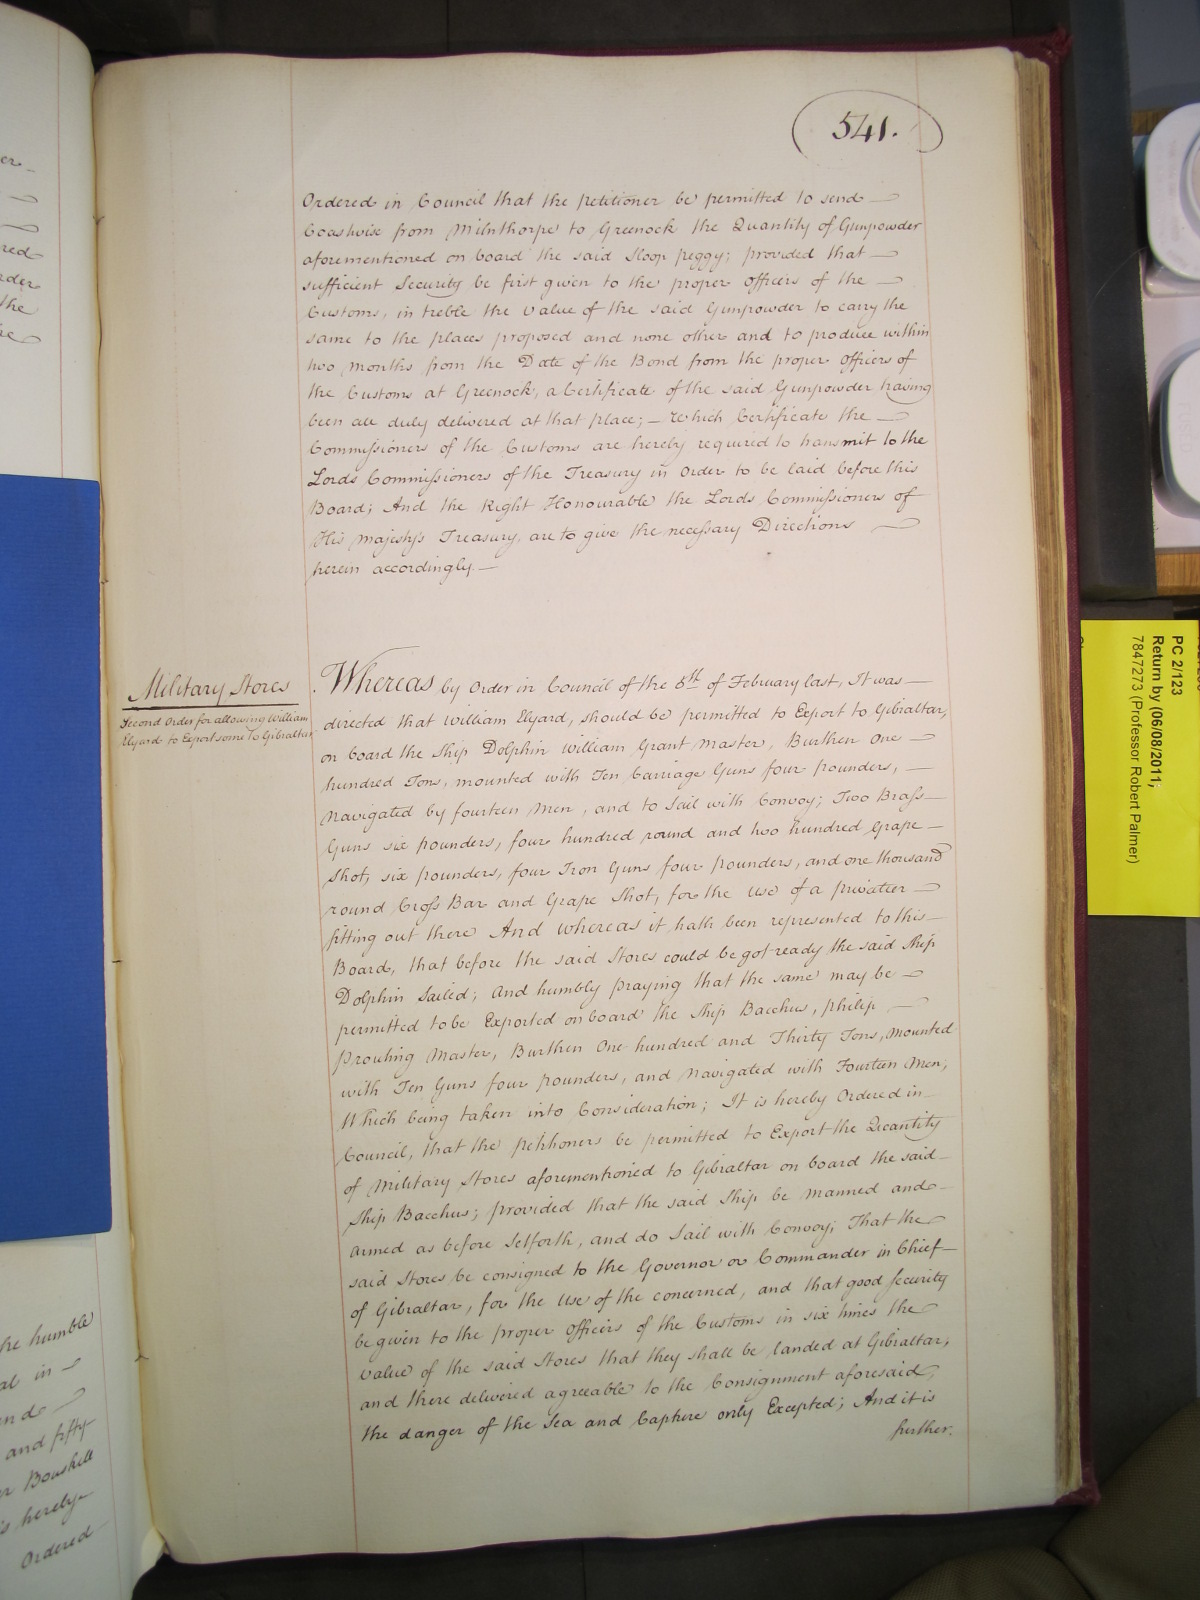 541.
Ordered in Council that the Petitioner be permitted to send
Coastwise from Milnthorpe to Greenock the Quantity of Gunpowder
aforementioned on board the said Sloop Peggy; provided that
sufficient Security be first given to the proper Officers of the
Customs, in treble the Value of the said Gunpowder to carry the
same to the places proposed and none other and to produce within
two Months from the Date of the Bond from the proper Officers of
the Customs at Greenock, a Certificate of the said Gunpowder having
been all duly delivered at that place; — Which Certificate the
Commissioners of the Customs are hereby required to transmit to the
Lords Commissioners of the Treasury in Order to be laid before this
Board; And the Right Honourable the Lords Commissioners of
His Majesty's Treasury, are to give the necessary Directions
herein accordingly. —
Military Stores
Second Order for allowing William
Elyard to Export some to Gibraltar
Whereas by Order in Council of the 8th of February last, It was
directed that William Elyard, should be permitted to Export to Gibraltar,
on board the Ship Dolphin William Grant Master, Burthen One
hundred Tons, mounted with Ten Carriage Guns four pounders,
Navigated by fourteen Men, and to Sail with Convoy; Two Brass
Guns six pounders, four hundred round and two hundred Grape
Shot, six pounders, four Iron Guns four pounders, and one thousand
round Cross Bar and Grape Shot, for the Use of a privateer
fitting out there And Whereas it hath been represented to this
Board, that before the said Stores could be got ready the said Ship
Dolphin Sailed; and humbly praying that the same may be
permitted to be Exported on board the Ship Bacchus, Philip
Prouting Master, Burthen One hundred and Thirty Tons, Mounted
with Ten Guns four pounders, and Navigated with Fourteen Men;
Which being taken into Consideration; It is hereby Ordered in
Council, that the petitioners be permitted to Export the Quantity
of Military Stores aforementioned to Gibraltar on board the said
Ship Bacchus; provided that the said Ship be manned and
armed as before Setforth, and do Sail with Convoy; That the
said Stores be consigned to the Governor or Commander in Chief
of Gibraltar, for the Use of the concerned, and that good Security
be given to the proper Officers of the Customs in six times the
value of the said Stores that they shall be landed at Gibraltar,
and there delivered agreeable to the Consignment aforesaid,
the danger of the Sea and Capture only Excepted; And it is
further.
PC 2/123
Return by (06/08/2011;
7847273 (Professor Robert Palmer)
the
he humble
al in
and
and fifty
Boushell
is hereby
Ordered